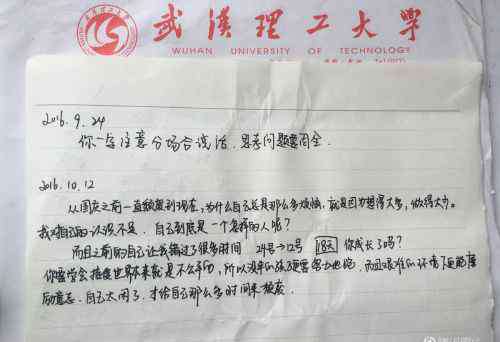 武汉理工大学
WUHAN UNIVERSITY OF TECHNOLOGY
2016.9.24
你一定注意分场合说话.思考问题要周全.
2016.10.12
从国庆之前一直颓废到现在,为什么自己总是那么多烦恼,就是因为想得太多,做得太少.
我对自己的认识不足.自己到底是一个怎样的人呢?
而且之前的自己让我错过了很多时间 24号→12号 18天 你成长了吗?
你要学会接受世界本来就是不公平的,所以没伞的孩子要努力地跑.而且艰难的环境下更能磨
励意志.自己太闲了.才给自己那么多时间来颓废.